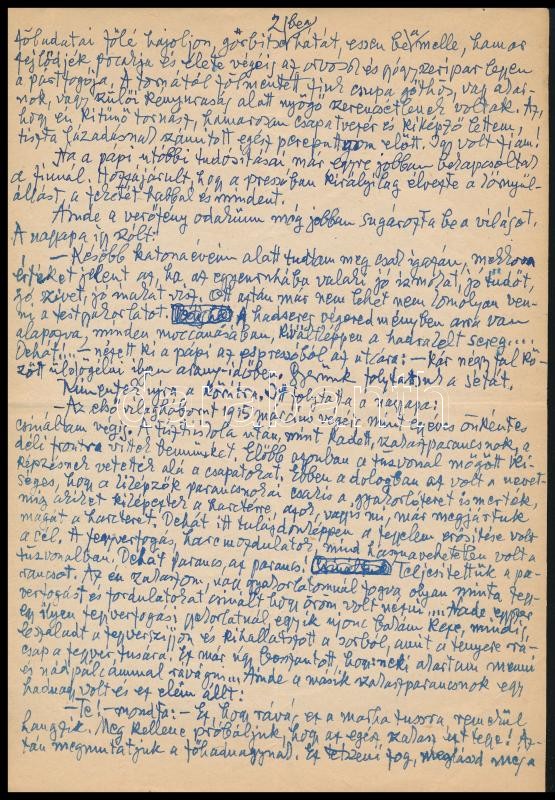 2/ben
fölé hajoljon, görbítse hátát, essen be a melle, hamar
fejlődjék pocakja és élete végéig az orvosok és gyógyszeripar legyen
a pártfogója. A tornától fölmentett fiúk csupa
nok, vagy szülői kényuraság alatt nyögő szerencsétlenek voltak. Az,
hogy én kitűnő tornász, hamarosan csapatvezér és kiképző lettem,
tiszta lázadásnak számított egész előtt. Így volt fiam!
Ha a pápi utóbbi tudósításai már egyre jobban bekapcsoltak
a fiúnál. Hozzájárult hogy a presszóban királyilag élvezte a
állást, a feketét habbal és mindent.
Amde a verőfény odakünn még jobban sugározta be a világot.
A nagyapa így szólt:
– Később katonaéveim alatt tudtam meg csak igazán, mekkora
értéket jelent az, ha az egyenruhába valaki jó izmokat, jó tüdőt,
jó szívet, jó inakat visz. Ott aztán már nem lehet nem komolyan ven-
ni a testgyakorlatot. A hadsereg végeredményben arra van
alapozva, minden moccanásában, kiváltképpen a hadrakelt sereg...
Dehát!... – nézett ki a pápi az eszpresszóból az utcára: – kár négy fal kö-
zött üldögélni ilyen aranyidőben. Gyerünk folytatjuk a sétát.
Kimentek újra a körútra. Ott folytatta a nagyapa:
– Az első világháborút 1915 március végén, mint egyéves önkéntes
csináltam végig. A tisztiiskola után, mint kadett, szakaszparancsnok, a
déli frontra vittek bennünket. Előbb azonban a tűzvonal mögött
képzésnek vetették alá a csapatokat. Ebben a dologban az volt a nevet-
séges, hogy a kiképzők parancsnokai csakis a gyakorlóteret ismerték,
míg akiket kiképeztek a harctérre, azok, vagyis mi, már megjártuk
magát a harcteret. Dehát itt tulajdonképpen a fegyelem erősítése volt
a cél. A fegyverfogás, harcmozdulatok mind hasznavehetetlen volt a
tűzvonalban. Dehát parancs, az parancs. Teljesítettük a pa-
rancsot. Az én szakaszom, nagy gyakorlatomnál fogva olyan minta fegy-
verfogást és fordulatokat csinált hogy öröm volt nézni... Hanem egyszer
egy ilyen fegyverfogási gyakorlatnál egyik nyomi balán keze, mindig
leszaladt a fegyverszíjon és kihallatszott a sorból, amit a tenyere rá-
csap a fegyver tusára. Ez már úgy bosszantott, hogy neki akartam menni
és nádpálcámmal rávágni... Amde a másik szakaszparancsnok egy
hadnagy volt és ez elém állt:
– Te! – mondta: – Ez, hogy rávág ez a marha tussra, remekül
hangzik. Meg kellene próbáljuk, hogy az egész szakasz ezt tegye! Az-
tán megmutatjuk a főhadnagynak. Ez tetszeni fog, meglásd még a